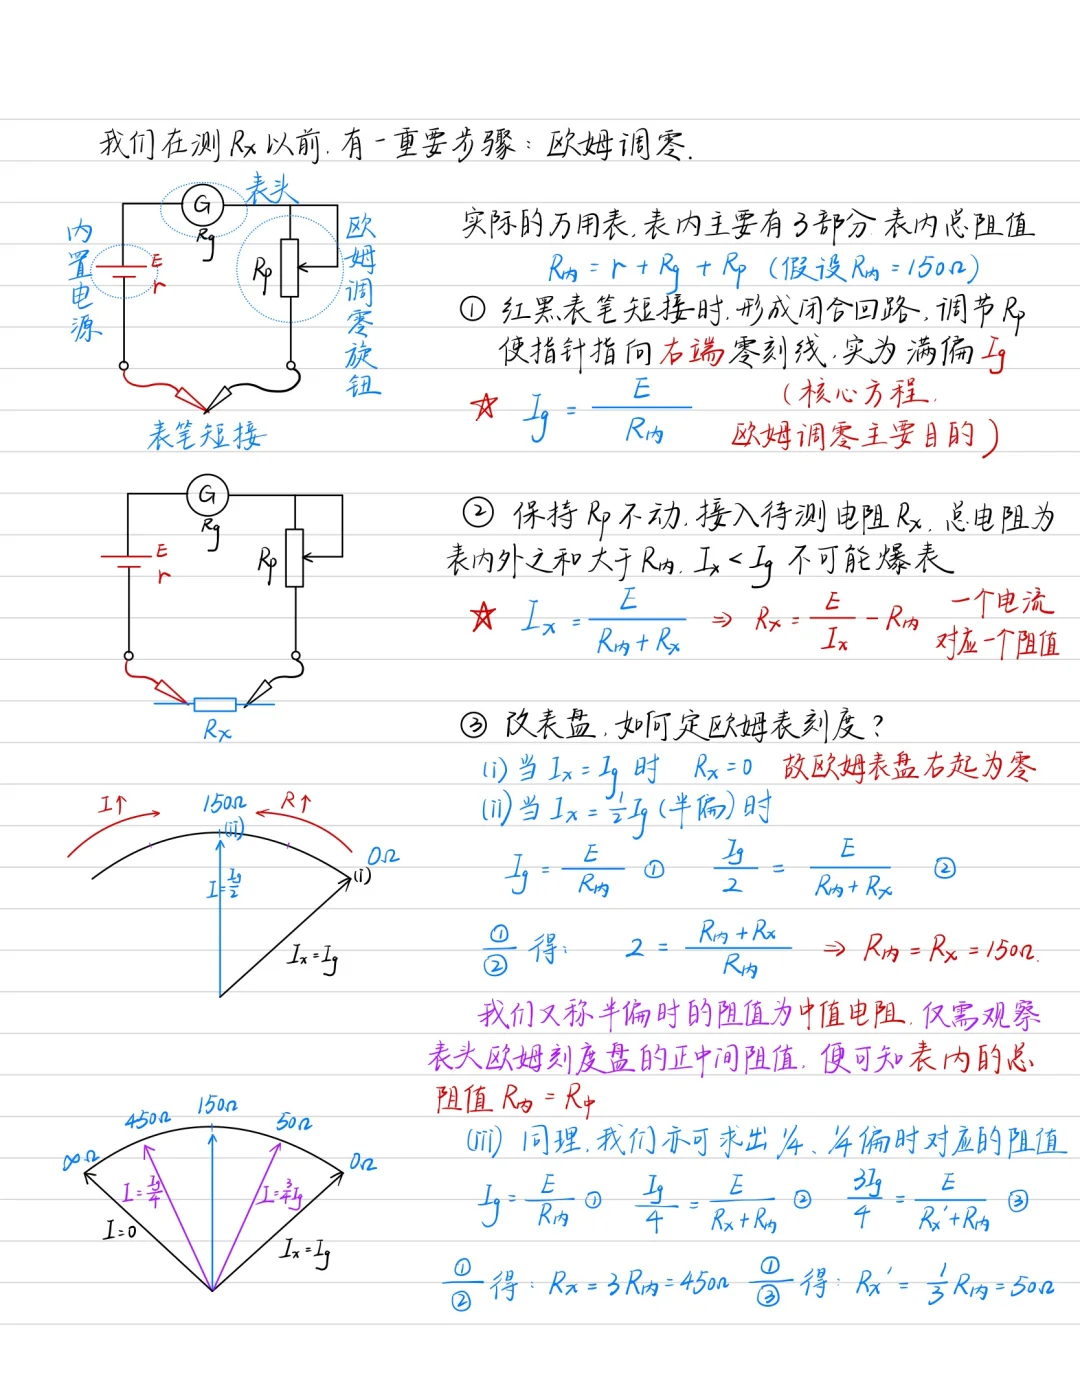 我们在测Rx以前,有一重要步骤:欧姆调零.
表头
G
Rg
内置电源
E
r
Rp
欧姆调零旋钮
表笔短接
实际的万用表,表内主要有3部分 表内总阻值
R内 = r + Rg + Rp (假设R内 = 150Ω)
① 红黑表笔短接时,形成闭合回路,调节Rp
使指针指向右端零刻线,实为满偏Ig
☆ Ig = E/R内 (核心方程,
欧姆调零主要目的)
G
Rg
E
r
Rp
Rx
② 保持Rp不动,接入待测电阻Rx,总电阻为
表内外之和大于R内, Ix < Ig 不可能爆表
☆ Ix = E/(R内 + Rx) ⇒ Rx = E/Ix - R内 一个电流
对应一个阻值
③ 改表盘,如何定欧姆表刻度?
(i) 当 Ix = Ig 时 Rx = 0 故欧姆表盘右起为零
(ii) 当 Ix = ½Ig (半偏)时
I↑
150Ω
R↑
(ii)
0Ω
(i)
I = Ig/2
Ix = Ig
Ig = E/R内 ① Ig/2 = E/(R内 + Rx) ②
①/② 得: 2 = (R内 + Rx)/R内 ⇒ R内 = Rx = 150Ω.
我们又称半偏时的阻值为中值电阻,仅需观察
表头欧姆刻度盘的正中间阻值,便可知表内的总
阻值 R内 = R中
∞Ω
450Ω
150Ω
50Ω
0Ω
I = Ig/4
I = ¾Ig
I = 0
Ix = Ig
(iii) 同理,我们亦可求出¼、¼偏时对应的阻值
Ig = E/R内 ① Ig/4 = E/(Rx + R内) ② 3Ig/4 = E/(Rx' + R内) ③
①/② 得: Rx = 3R内 = 450Ω ①/③ 得: Rx' = ⅓R内 = 50Ω